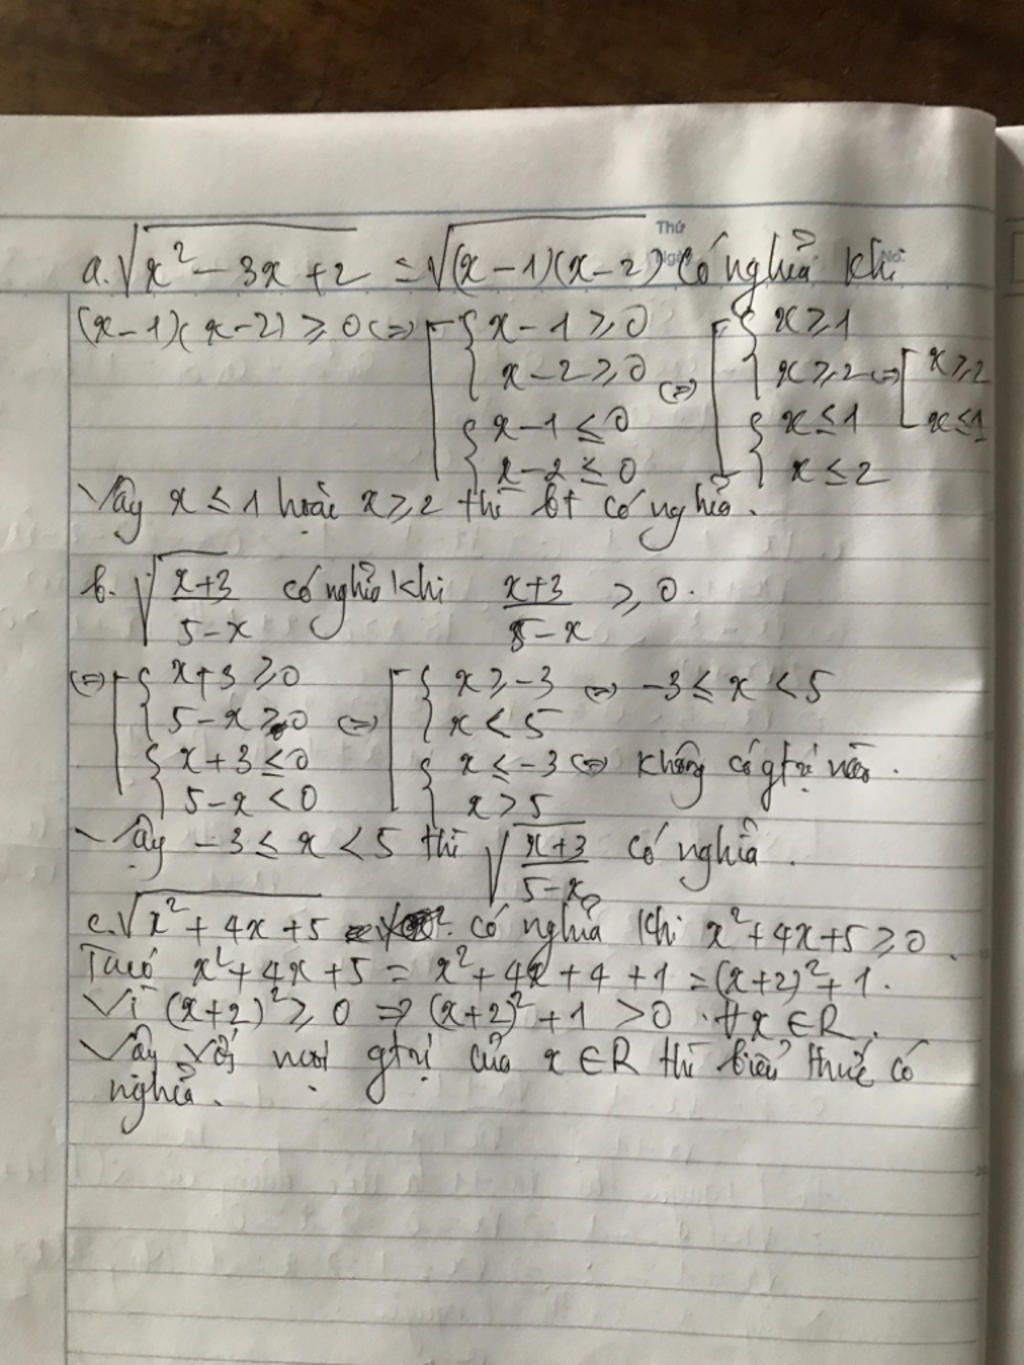 Thứ
Ngày No.
a. √(x² − 3x + 2) = √((x − 1)(x − 2)) có nghĩa khi
(x−1)(x−2) ≥ 0 ⇔ [ { x − 1 ≥ 0 ⇔ [ { x ≥ 1
x − 2 ≥ 0 x ≥ 2 ⇔ [ x ≥ 2
{ x − 1 ≤ 0 { x ≤ 1 x ≤ 1
x − 2 ≤ 0 x ≤ 2
Vậy x ≤ 1 hoặc x ≥ 2 thì bt có nghĩa.
b. √((x+3)/(5−x)) có nghĩa khi (x+3)/(5−x) ≥ 0.
⇔ [ { x+3 ≥ 0 [ { x ≥ −3 ⇔ −3 ≤ x < 5
5 − x > 0 ⇔ x < 5
{ x + 3 ≤ 0 { x ≤ −3 ⇔ không có gtrị nào.
5 − x < 0 x > 5
Vậy −3 ≤ x < 5 thì √((x+3)/(5−x)) có nghĩa.
c. √(x² + 4x + 5) có nghĩa khi x² + 4x + 5 ≥ 0.
Ta có x² + 4x + 5 = x² + 4x + 4 + 1 = (x+2)² + 1.
Vì (x+2)² ≥ 0 ⇒ (x+2)² + 1 > 0 ∀x ∈ R.
Vậy với mọi gtrị của x ∈ R thì biểu thức có
nghĩa.